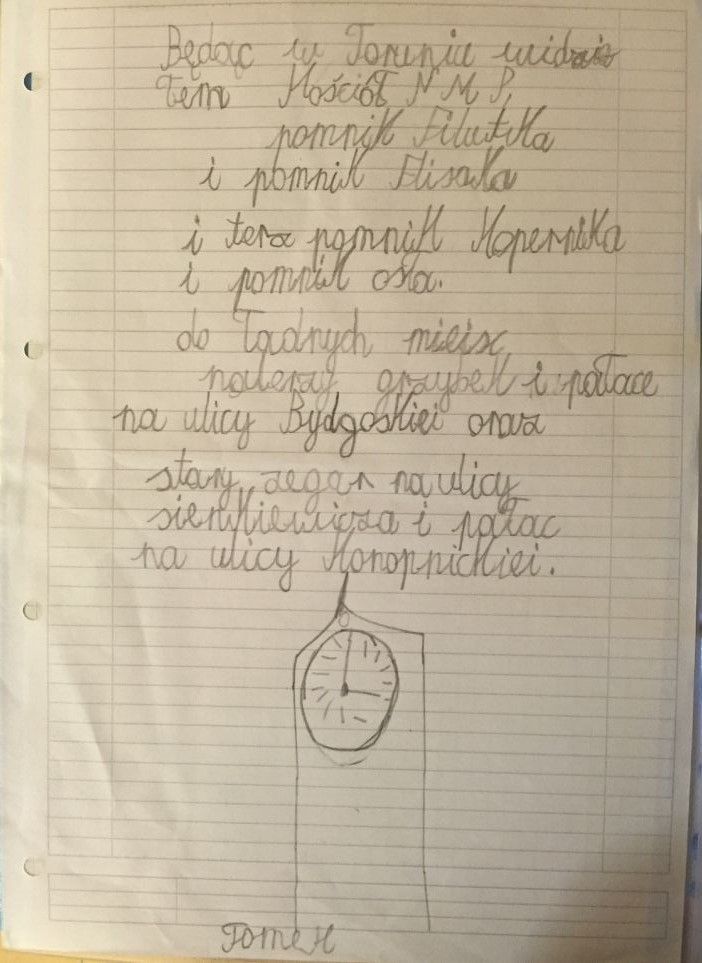 Będąc w Toruniu widzia
łem Kościół N M P,
pomnik Filutka
i pomnik Flisaka
i teraz pomnik Kopernika
i pomnik osła.
do ładnych miejsc
należay grzybek i pałace
na ulicy Bydgoskiej oraz
stary zegar na ulicy
sienkiewicza i pałac
na ulicy Konopnickiej.
Tomek